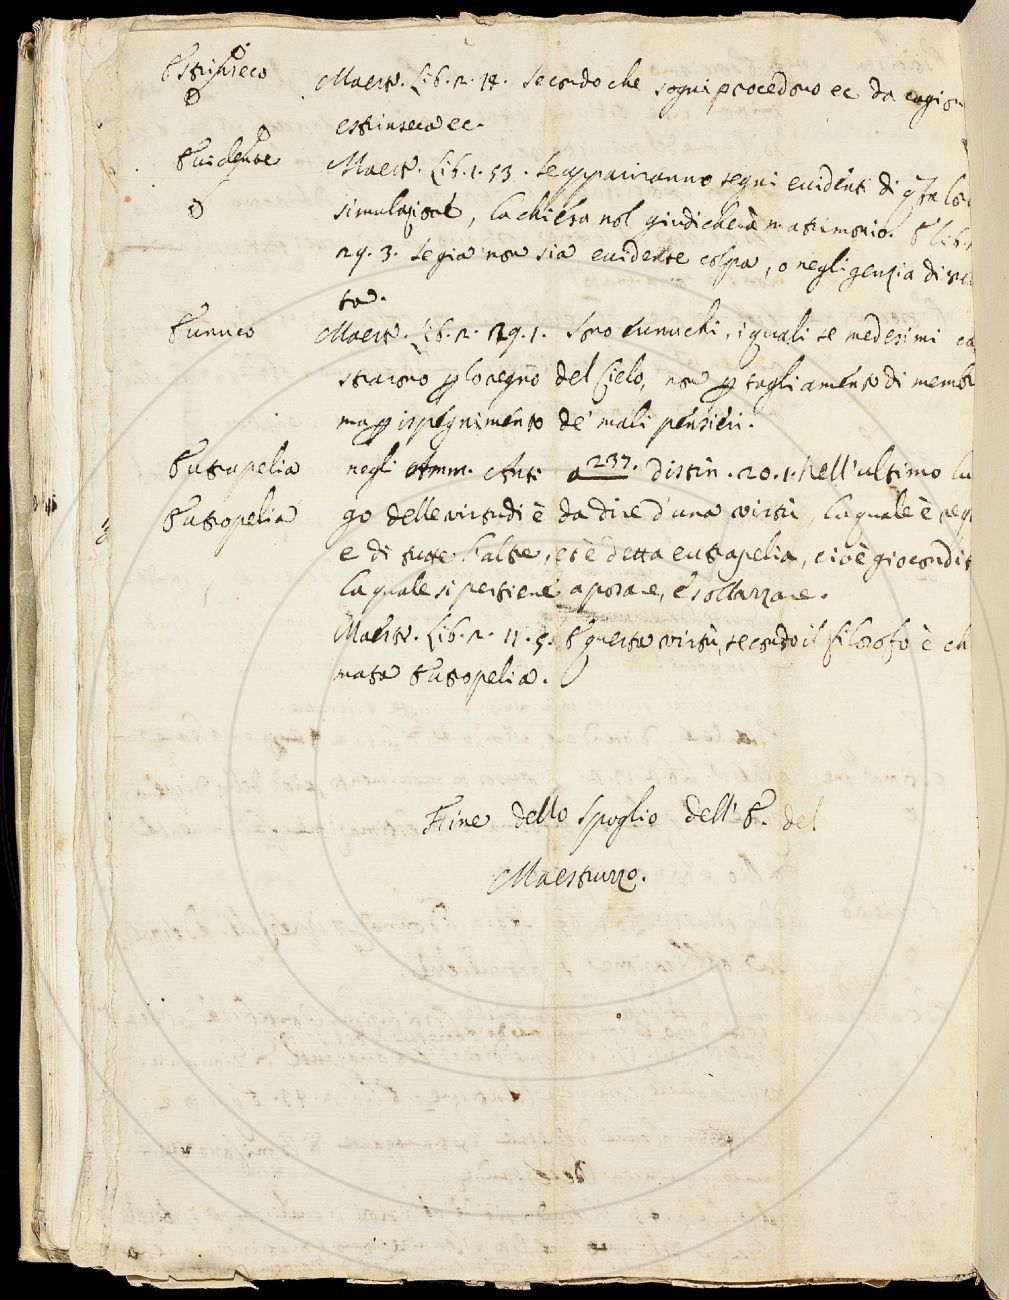 Estrinseco Maestr. Lib. 2. 14. secondo che sogni procedono ec da cagion
estrinseca ec.
Evidente Maestr. Lib. 1. 53. se appariranno segni evidenti di
simulazione, la chiesa nol giudicherà matrimonio. E lib.
29. 3. se già non sia evidente colpa, o negligenzia di
ta.
Eunuco Maestr. Lib. 2. 29. 1. Sono eunuchi, i quali se medesimi ca
straron ꝑ lo regno del Cielo, non ꝑ tagliamento di membr
ma ꝑ ispegnimento de' mali pensieri.
Eutrapelia negli Amm. Ant. a 237. distin. 20. 1. Nell'ultimo luo
Eutropelia go delle virtudi è da dire d'una virtù, la quale è
e di tutte l'altre, et è detta eutrapelia, cioè giocondit
la quale si pertiene a posare, e sollazzare.
Maestr. Lib. 2. 11. 5. E questa virtù, secondo il filosofo è ch
mata Eutropelia.
Fine dello Spoglio dell' E. del
Maestruzzo.